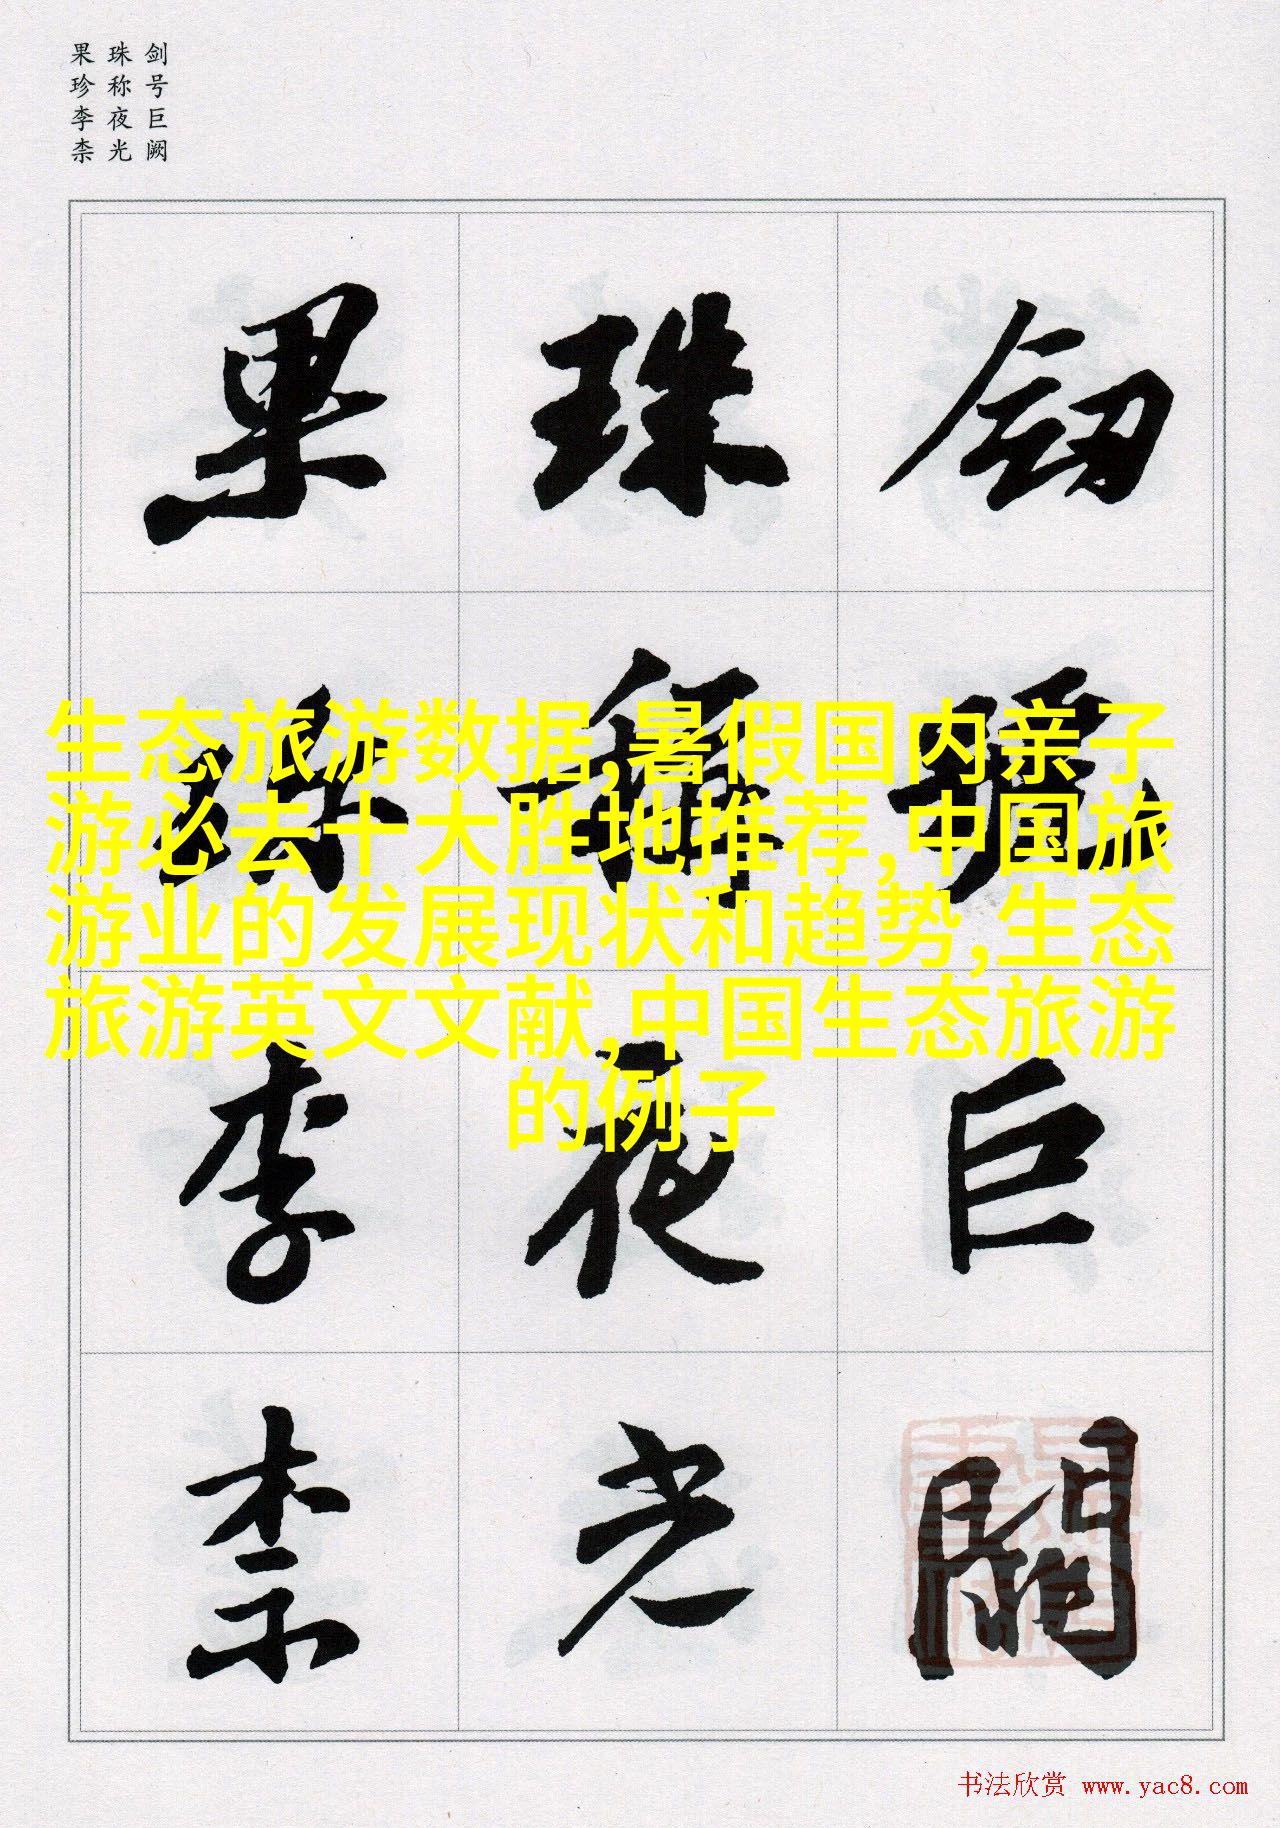 剑号巨阙
珠称夜光
果珍李柰
剑号巨阙
珠称夜光
果珍李柰
生态旅游数据,暑假国内亲子
游必去十大胜地推荐,中国旅
游业的发展现状和趋势,生态
旅游英文文献,中国生态旅游
的例子
书法欣赏 www.yac8.com